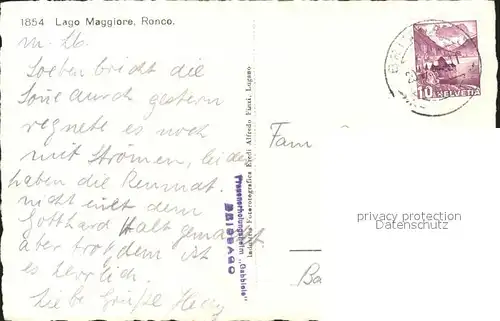 1854 Lago Maggiore, Ronco.
M. Lb.
Soeben bricht die
Sonne durch gestern
regnete es noch
mit Strömen, leider
haben die
nicht mit dem
Gotthard Halt gemacht
aber trotzdem ist
es herrlich.
Liebe Grüße
Industria Fotocografica Eredi Alfredo Finzi, Lugano
Frauenerholungsheim „Gabbiole"
BRISSAGO
BRI
10 HELVETIA
Fam
Ba
privacy protection
Datenschutz